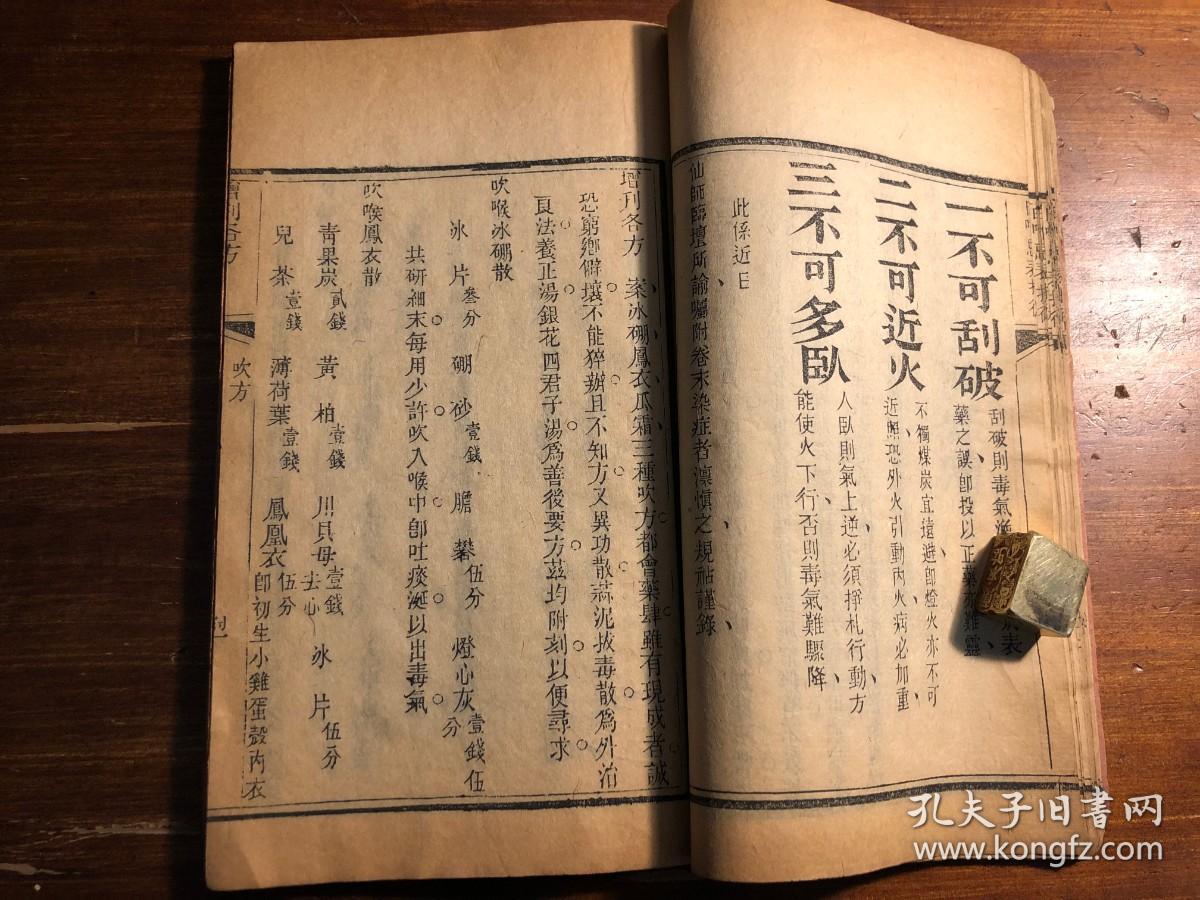 一不可刮破 刮破則毒氣
藥之誤卽投以正藥亦難靈
二不可近火 不獨煤炭宜遠避卽燈火亦不可
近照恐外火引動內火病必加重
三不可多臥 人臥則氣上逆必須掙札行動方
能使火下行否則毒氣難驟降
此係近日
仙師臨壇所諭囑附卷末染症者凛愼之規祜謹錄
增刊各方 案冰硼鳳衣瓜霜三種吹方都會藥肆雖有現成者誠
恐窮鄕僻壤不能猝辦且不知方又異功散蒜泥拔毒散爲外治
良法養正湯銀花四君子湯爲善後要方茲均附刻以便尋求
吹喉冰硼散
冰片叄分 硼砂壹錢 膽礬伍分 燈心灰壹錢伍分
共研細末每用少許吹入喉中卽吐痰涎以出毒氣
吹喉鳳衣散
靑果炭貳錢 黃柏壹錢 川貝母壹錢去心 冰片伍分
兒茶壹錢 薄荷葉壹錢 鳳凰衣伍分卽初生小雞蛋殼內衣
增刊各方
吹方
孔夫子旧书网
www.kongfz.com